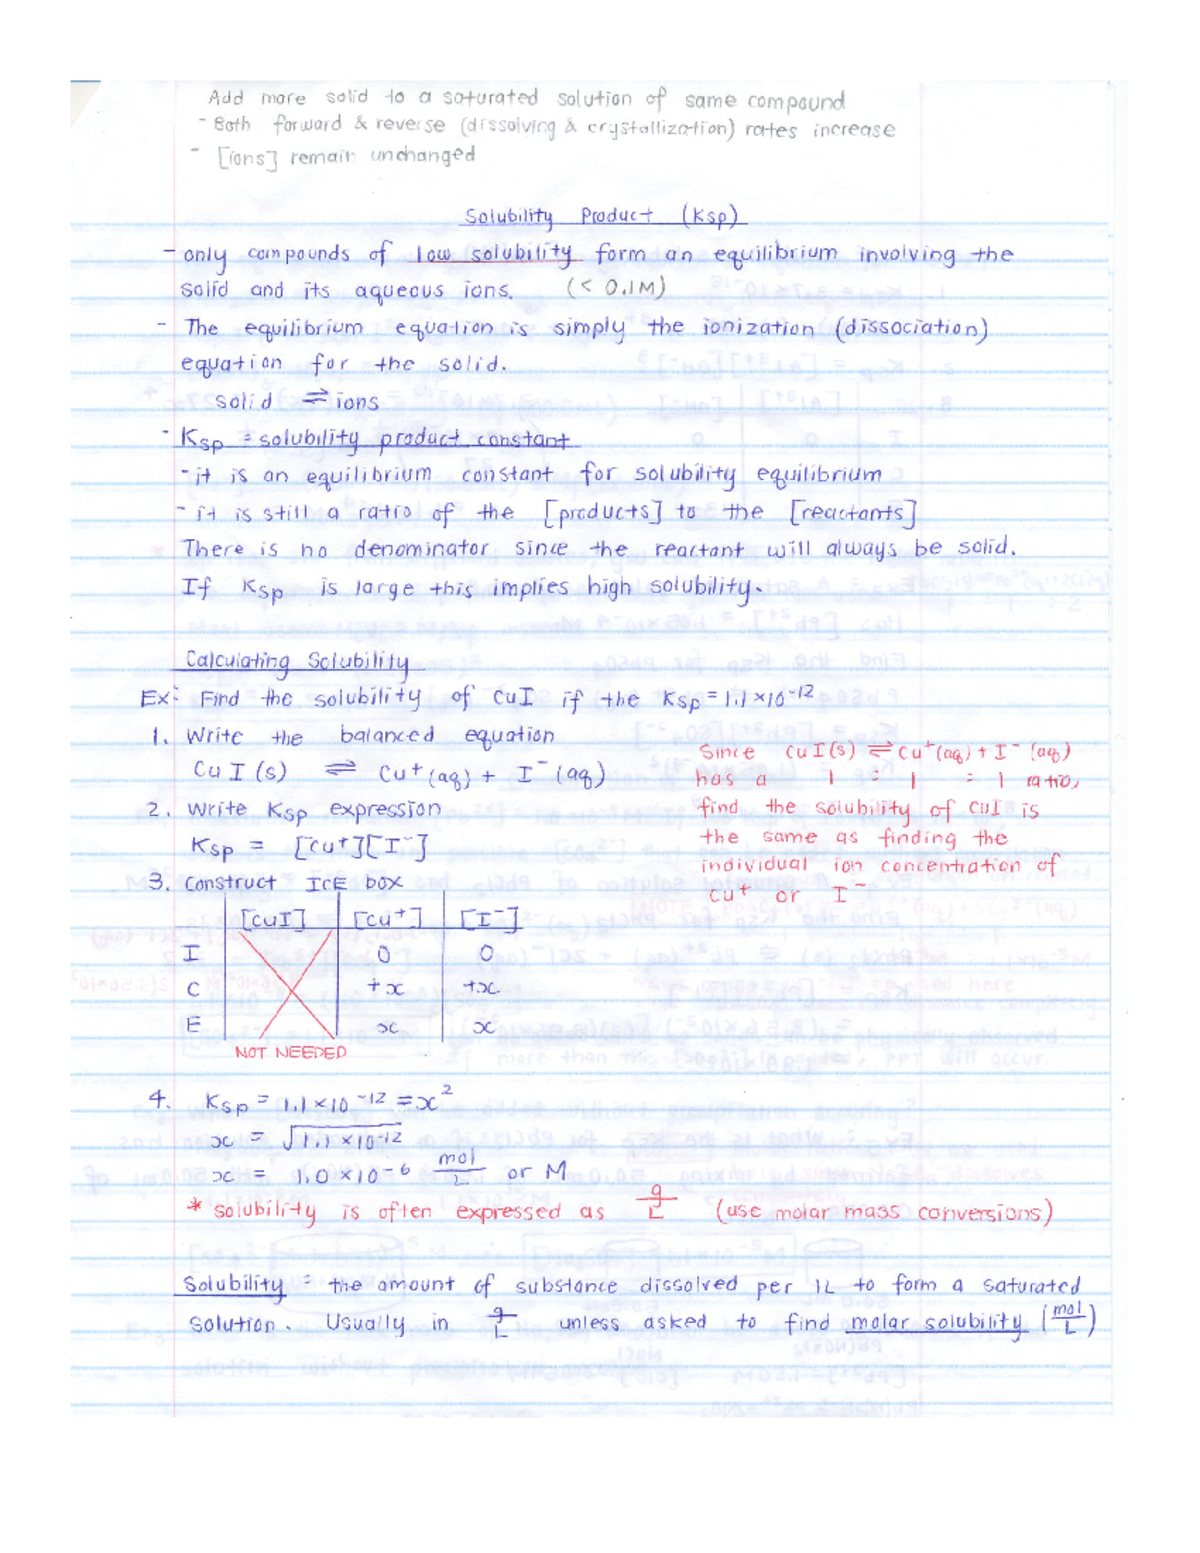 Add more solid to a saturated solution of same compound
- Both forward & reverse (dissolving & crystallization) rates increase
- [ions] remain unchanged
Solubility Product (Ksp)
- only compounds of low solubility form an equilibrium involving the
solid and its aqueous ions. (< 0.1M)
- The equilibrium equation is simply the ionization (dissociation)
equation for the solid.
solid ⇌ ions
- Ksp = solubility product constant
- it is an equilibrium constant for solubility equilibrium
- it is still a ratio of the [products] to the [reactants]
There is no denominator since the reactant will always be solid.
If Ksp is large this implies high solubility.
Calculating Solubility
Ex: Find the solubility of CuI if the Ksp = 1.1 × 10⁻¹²
1. Write the balanced equation
CuI (s) ⇌ Cu⁺(aq) + I⁻(aq)
2. Write Ksp expression
Ksp = [Cu⁺][I⁻]
3. Construct ICE box
Since CuI(s) ⇌ Cu⁺(aq) + I⁻(aq)
has a 1 : 1 : 1 ratio,
find the solubility of CuI is
the same as finding the
individual ion concentration of
Cu⁺ or I⁻
[CuI] [Cu⁺] [I⁻]
I 0 0
C +x +x
E x x
NOT NEEDED
4. Ksp = 1.1 × 10⁻¹² = x²
x = √1.1 × 10⁻¹²
x = 1.0 × 10⁻⁶ mol/L or M
* solubility is often expressed as g/L (use molar mass conversions)
Solubility = the amount of substance dissolved per 1L to form a saturated
solution. Usually in g/L unless asked to find molar solubility (mol/L)